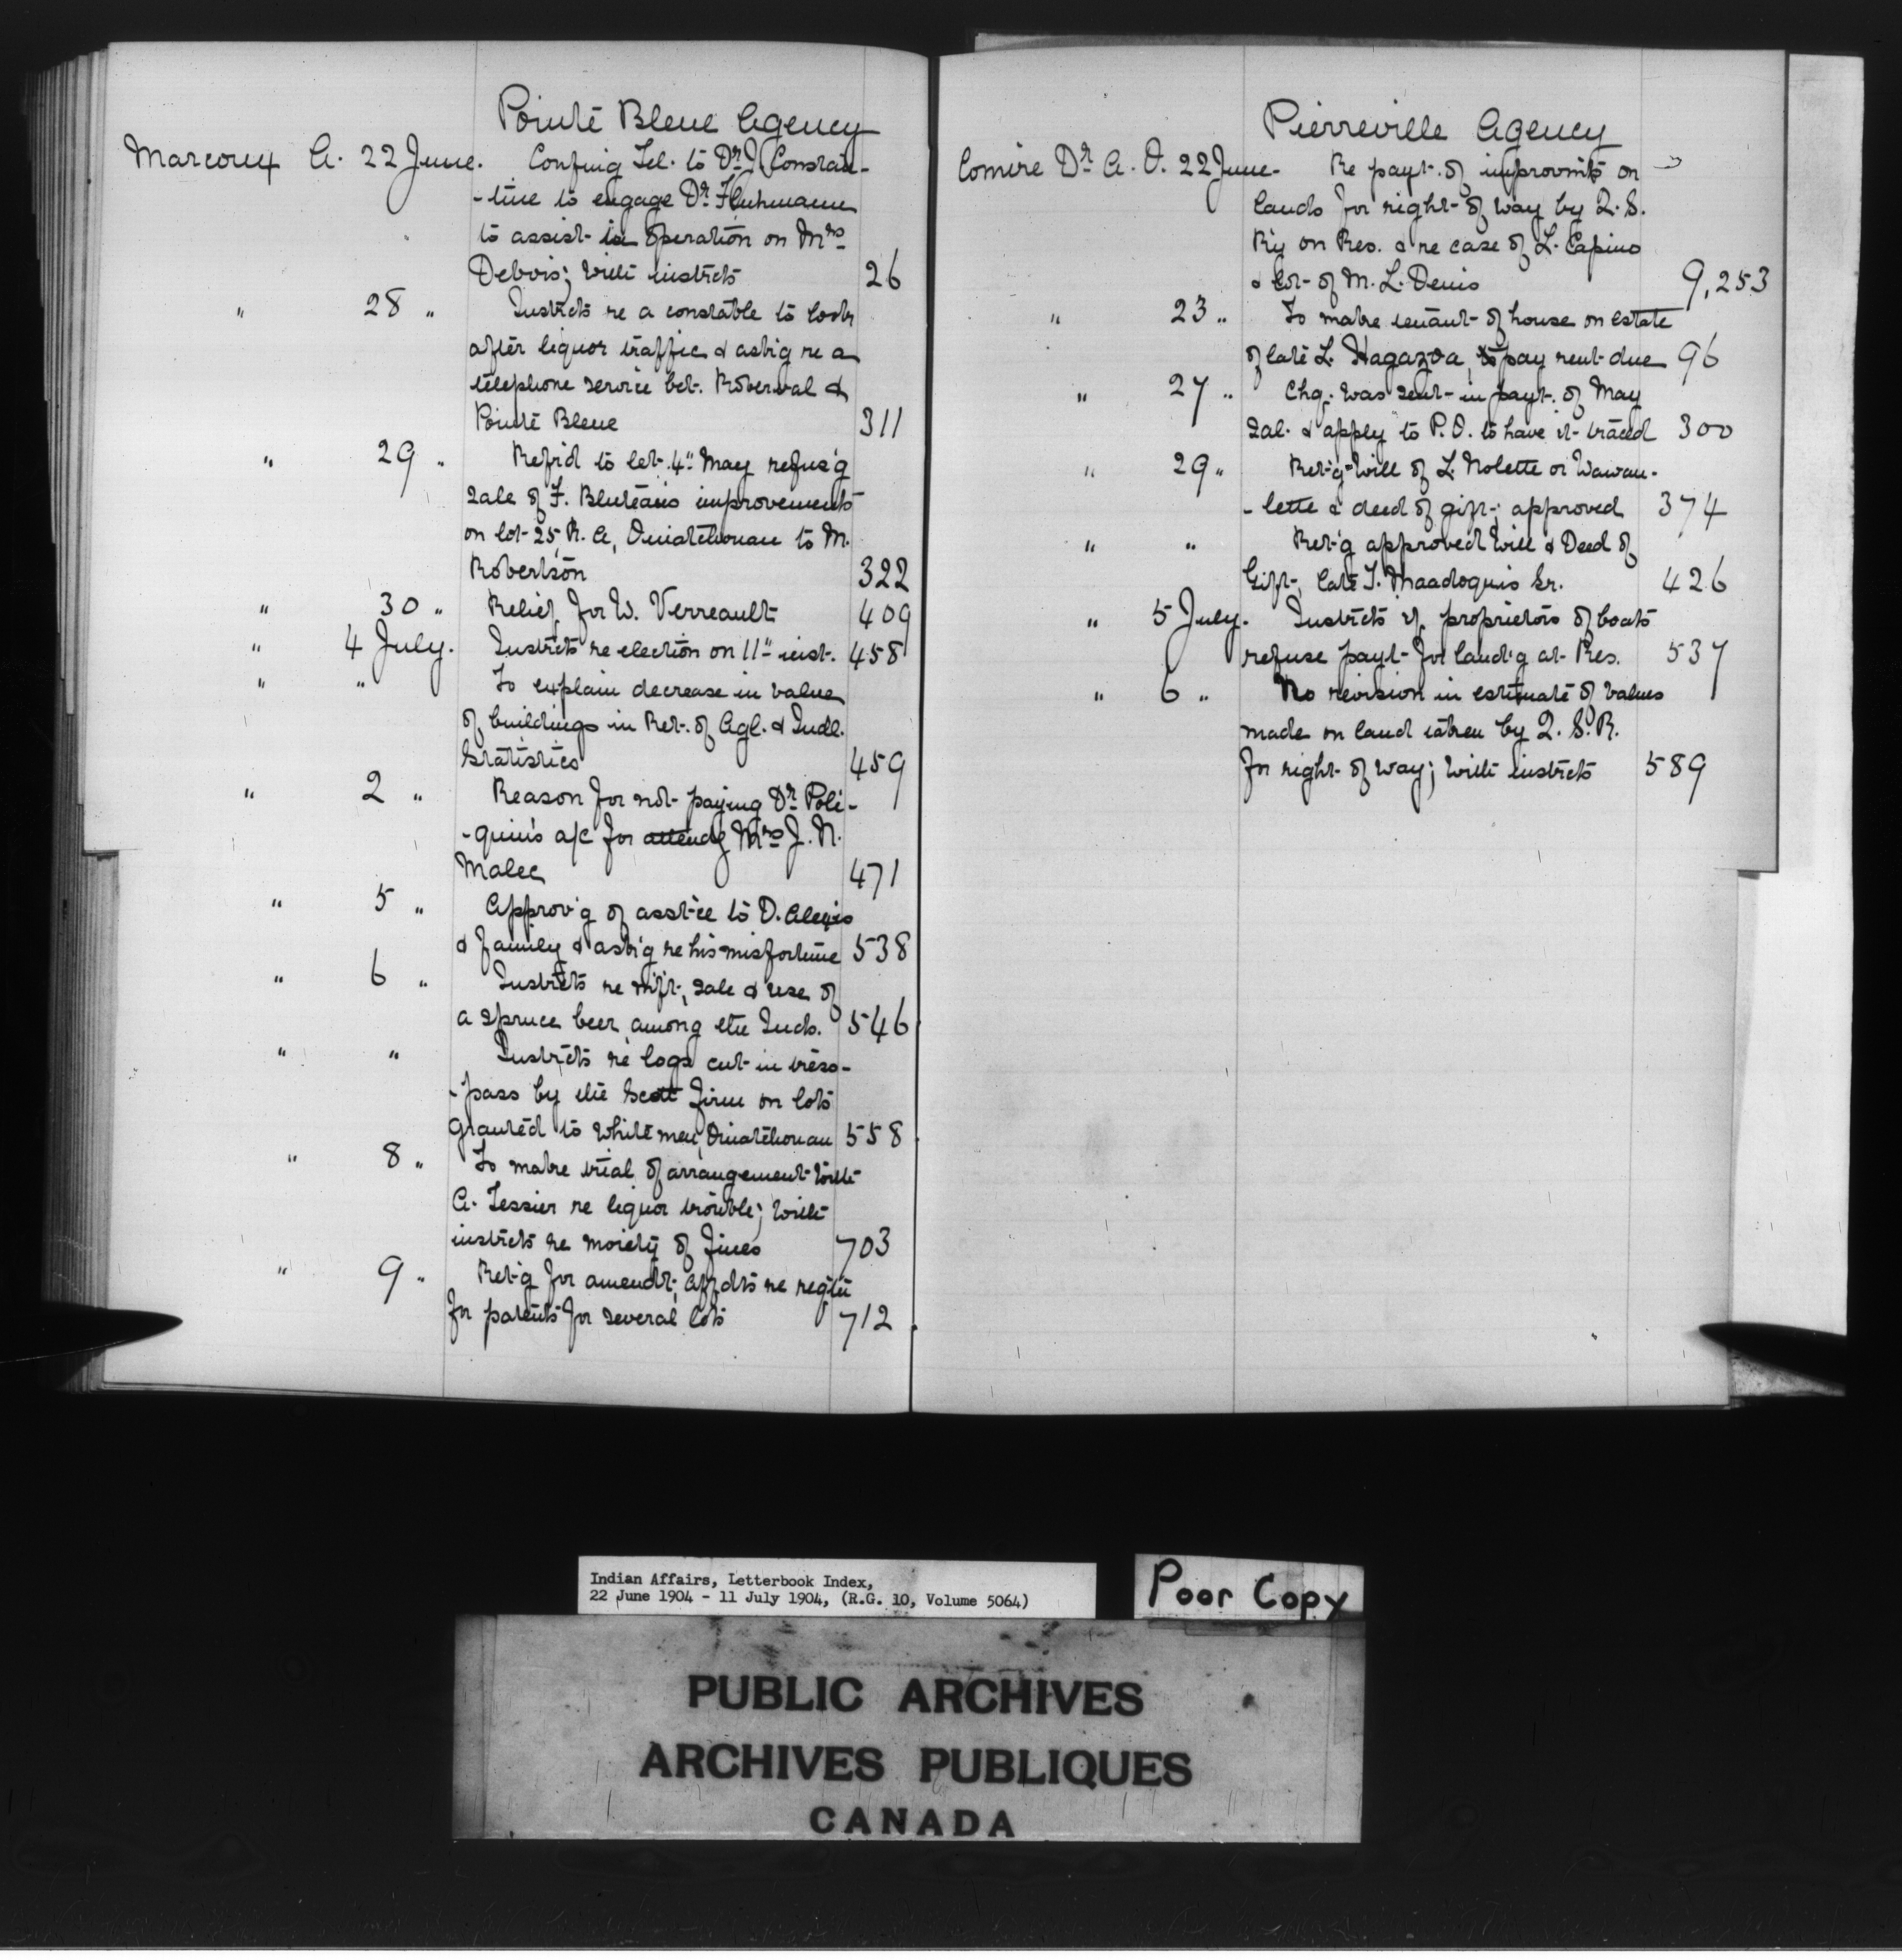 Pointe Bleue Agency
Marcoux A. 22 June. Confing Tel. to Dr. J. Constan-
-tine to engage Dr.
to assist in operation on Mrs
Debois; with instrcts 26
" 28 " Instrcts re a constable to look
after liquor traffic & askg re a
telephone service bet. Roberval &
Pointe Bleue 311
" 29 " Refrd to let. 4" May refus'g
sale of F. Bluteau's improvements
on lot 25, R. A, Ouiatchouan to M.
Robertson 322
" 30 " Relief for W. Verreault 409
" 4 July. Instrcts re election on 11" inst. 458
" " To explain decrease in value
of buildings in Ret. of Agl. & Indl.
Statistics 459
" 2 " Reason for not paying Dr. Poli-
-quin's a/c for attendg Mrs J. N.
Malec 471
" 5 " Approv'g of asst'ce to D. Alexis
& family & ask'g re his misfortune 538
" 6 " Instrcts re m'f't, sale & use of
a spruce beer among the Inds. 546
" " Instrcts re logs cut in tres-
-pass by the Scott firm on lots
granted to white men, Ouiatchouan 558
" 8 " To make trial of arrangement with
A. Tessier re liquor trouble; with
instrcts re moiety of fines 703
" 9 " Ret'g for amendt, affdts re
for patents for several lots 712
Pierreville Agency
Comire Dr. A. O. 22 June. Re payt. of improvmts on
lands for right of way by Q. S.
Ry on Res. & re case of L. Capino
& lot of M. L. Denis 9, 253
" 23 " To make tenant of house on estate
of late L. Hagazoa, to pay rent due 96
" 27 " Chq. was sent in payt. of May
sal. & apply to P. O. to have it traced 300
" 29 " Ret'g Will of L. Nolette or Wawan-
-lette & deed of gift; approved 374
" " Ret'g approved Will & Deed of
Gift, late T. Maadoquis Sr. 426
" 5 July. Instrcts if proprietors of boats
refuse payt for land'g at Res. 537
" 6 " No revision in estimate of values
made on land taken by Q. S. R.
for right of way; with instrcts 589
Indian Affairs, Letterbook Index,
22 June 1904 - 11 July 1904, (R.G. 10, Volume 5064)
Poor Copy
PUBLIC ARCHIVES
ARCHIVES PUBLIQUES
CANADA